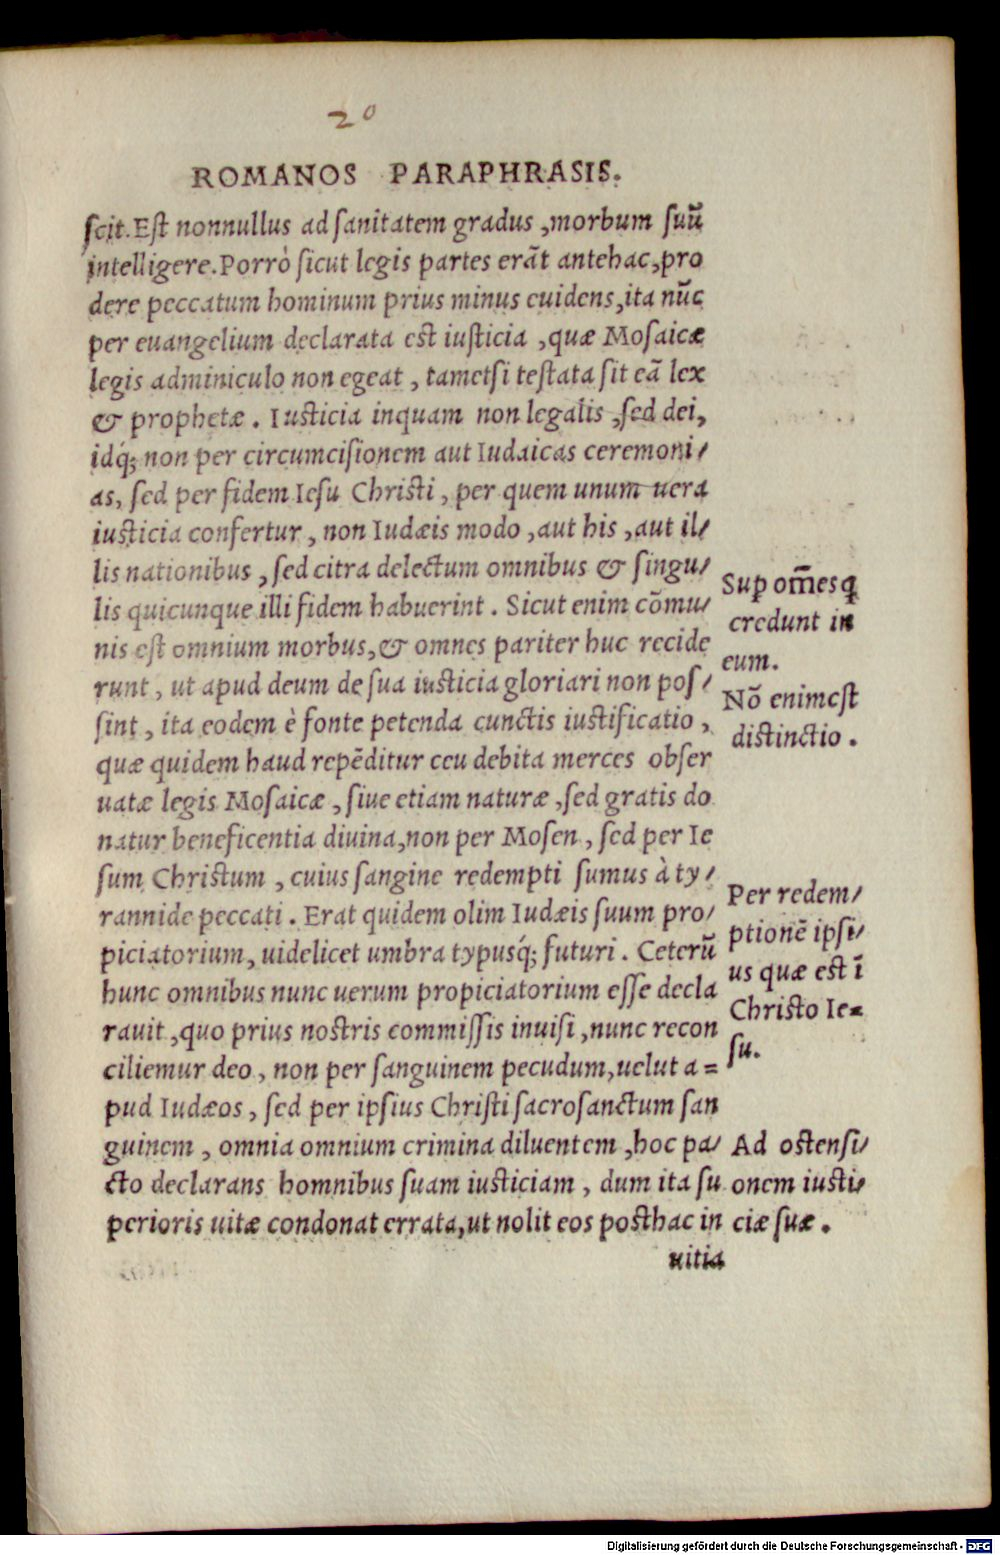 20
ROMANOS PARAPHRASIS.
ſcit. Eſt nonnullus ad ſanitatem gradus, morbum ſuũ
intelligere. Porrò ſicut legis partes erãt antehac, pro
dere peccatum hominum prius minus euidens, ita nũc
per euangelium declarata eſt iuſticia, quæ Moſaicæ
legis adminiculo non egeat, tametſi teſtata ſit eã lex
& prophetæ. Iuſticia inquam non legalis, ſed dei,
idq́; non per circumciſionem aut Iudaicas ceremoni/
as, ſed per fidem Ieſu Chriſti, per quem unum uera
iuſticia confertur, non Iudæis modo, aut his, aut il/
lis nationibus, ſed citra delectum omnibus & ſingu/
lis quicunque illi fidem habuerint. Sicut enim cõmu/
nis eſt omnium morbus, & omnes pariter huc recide
runt, ut apud deum de ſua iuſticia gloriari non poſ/
ſint, ita eodem è fonte petenda cunctis iuſtificatio,
quæ quidem haud repẽditur ceu debita merces obſer
uatæ legis Moſaicæ, ſiue etiam naturæ, ſed gratis do
natur beneficentia diuina, non per Moſen, ſed per Ie
ſum Chriſtum, cuius ſangine redempti ſumus à ty/
rannide peccati. Erat quidem olim Iudæis ſuum pro/
piciatorium, uidelicet umbra typusq́; futuri. Ceterũ
hunc omnibus nunc uerum propiciatorium eſſe decla
rauit, quo prius noſtris commiſſis inuiſi, nunc recon
ciliemur deo, non per ſanguinem pecudum, uelut a=
pud Iudæos, ſed per ipſius Chriſti ſacroſanctum ſan
guinem, omnia omnium crimina diluentem, hoc pa/
cto declarans homnibus ſuam iuſticiam, dum ita ſu
perioris uitæ condonat errata, ut nolit eos poſthac in
uitia
Suꝑ om̃es q̃
credunt in
eum.
Nõ enim eſt
diſtinctio.
Per redem/
ptionẽ ipſi/
us quæ eſt ĩ
Chriſto Ie=
ſu.
Ad oſtenſi/
onem iuſti/
ciæ ſuæ.
Digitalisierung gefördert durch die Deutsche Forschungsgemeinschaft - DFG